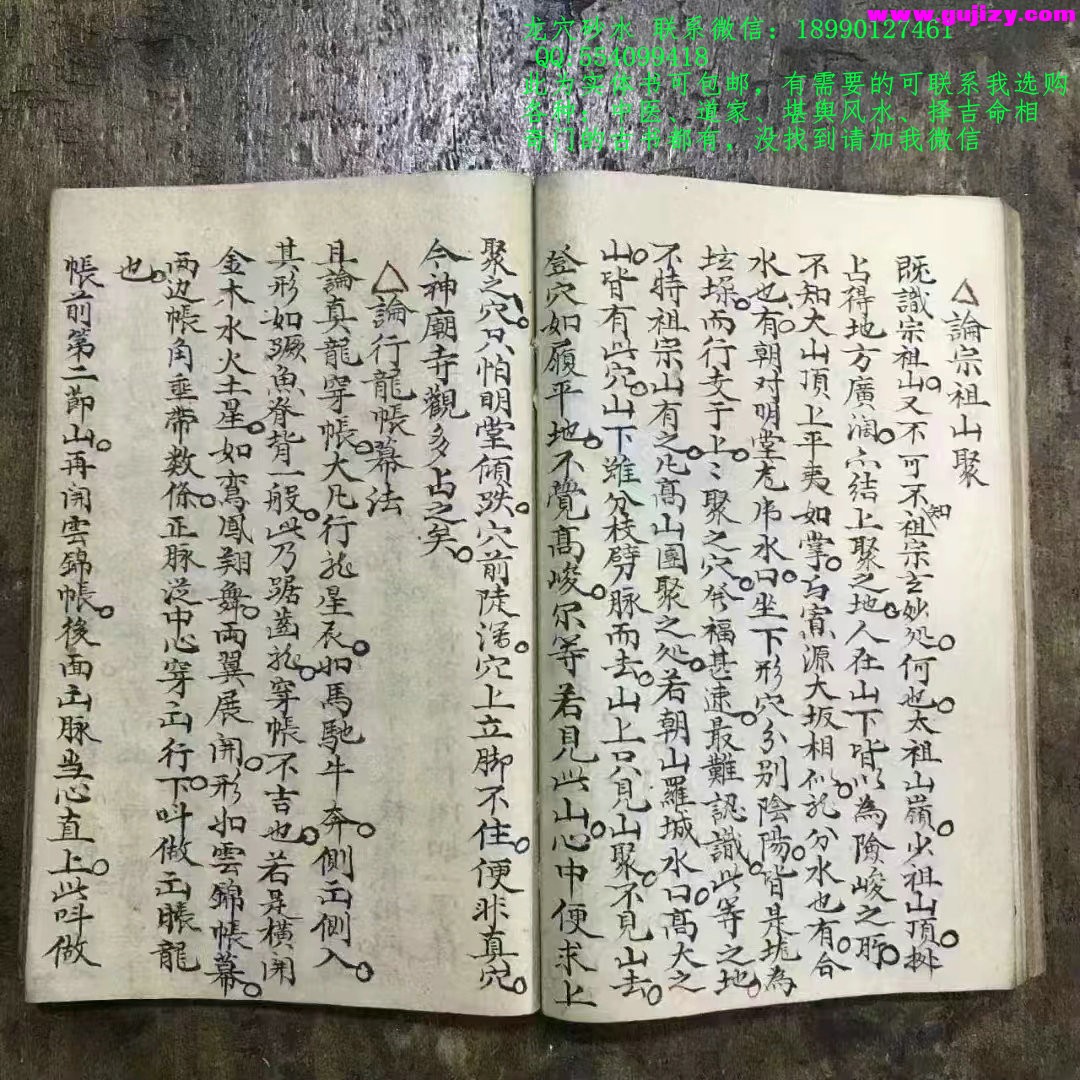 www.gujizy.com
龙穴砂水 联系微信：18990127461
QQ:554099418
此为实体书可包邮，有需要的可联系我选购
各种：中医、道家、堪舆风水、择吉命相
奇门的古书都有，没找到请加我微信
△論宗祖山聚
既識宗祖山。又不可不知祖宗玄妙処。何也。太祖山嶺。少祖山頂。排
占得地方廣濶。穴結上聚之地。人在山下皆以為險峻之所。
不知大山頂上平夷如掌。与源大坂相似。龍分水也。有合
水也。有朝对明堂。水口。坐下形穴。分别陰陽。皆是坑為
而行玄于上。上聚之穴。發福甚速。最難認識。此等之地。
不特祖宗山有之。凡高山團聚之処。若朝山羅城水口。高大之
山。皆有此穴。山下雖分枝劈脉而去。山上只見山聚。不見山去。
登穴如履平地。不覺高峻。尔等若見此山。心中便求上
聚之穴。只怕明堂傾跌。穴前陡瀉。穴上立脚不住。便非真穴。
今神廟寺觀多占之矣。
△論行龍帳幕法
且論真龍穿帳。大凡行龍星辰。如馬馳牛奔。側出側入。
其形如鱖魚脊背一般。此乃踞齒龍。穿帳不吉也。若是橫開
金木水火土星。如鸞鳳翔舞。兩翼展開。形如雲錦帳幕。
両边帳角垂帶数條。正脉從中心穿出行下。叫做出脹龍
也。
帳前第二節山。再開雲錦帳。後面出脉当心直上。此叫做